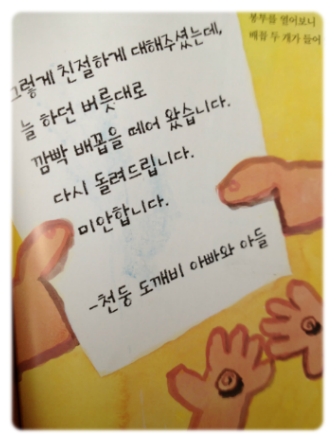 그렇게 친절하게 대해주셨는데,
늘 하던 버릇대로
깜빡 배꼽을 떼어 왔습니다.
다시 돌려드립니다.
미안합니다.
-천둥 도깨비 아빠와 아들
봉투를 열어보니
배꼽 두 개가 들어